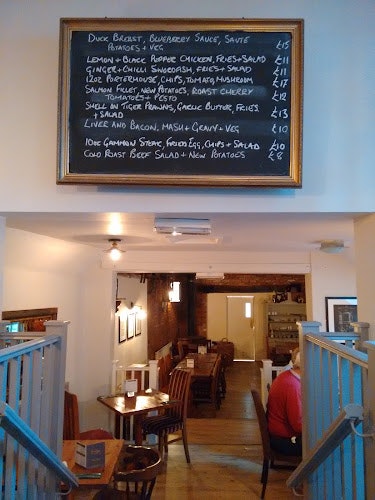 DUCK BREAST, BLUEBERRY SAUCE, SAUTE £15
POTATOES + VEG
LEMON + BLACK PEPPER CHICKEN, FRIES + SALAD £11
GINGER + CHILLI SWORDFISH, FRIES + SALAD £11
12OZ PORTERHOUSE, CHIPS, TOMATO, MUSHROOM £17
SALMON FILLET, NEW POTATOES, ROAST CHERRY £12
TOMATOES + PESTO
SHELL ON TIGER PRAWNS, GARLIC BUTTER, FRIES £13
+ SALAD
LIVER AND BACON, MASH + GRAVY + VEG £10
10OZ GAMMON STEAK, FRIED EGG, CHIPS + SALAD £10
COLD ROAST BEEF SALAD + NEW POTATOES £8